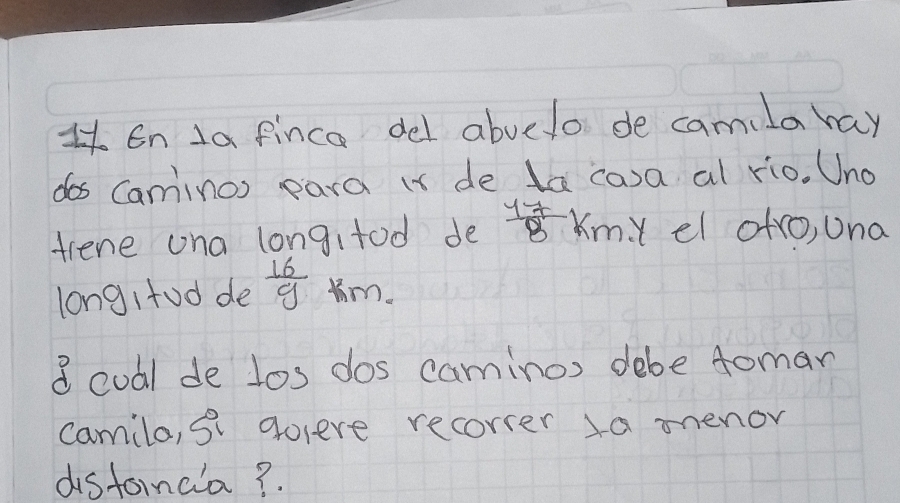 17. En la finca del abuelo de camila hay
dos caminos para ir de la casa al rio. Uno
tiene una longitud de 17/8 Km. Y el otro, Una
longitud de 16/9 Km.
¿ cuál de los dos caminos debe tomar
camila, Si quiere recorrer la menor
distancia ?.